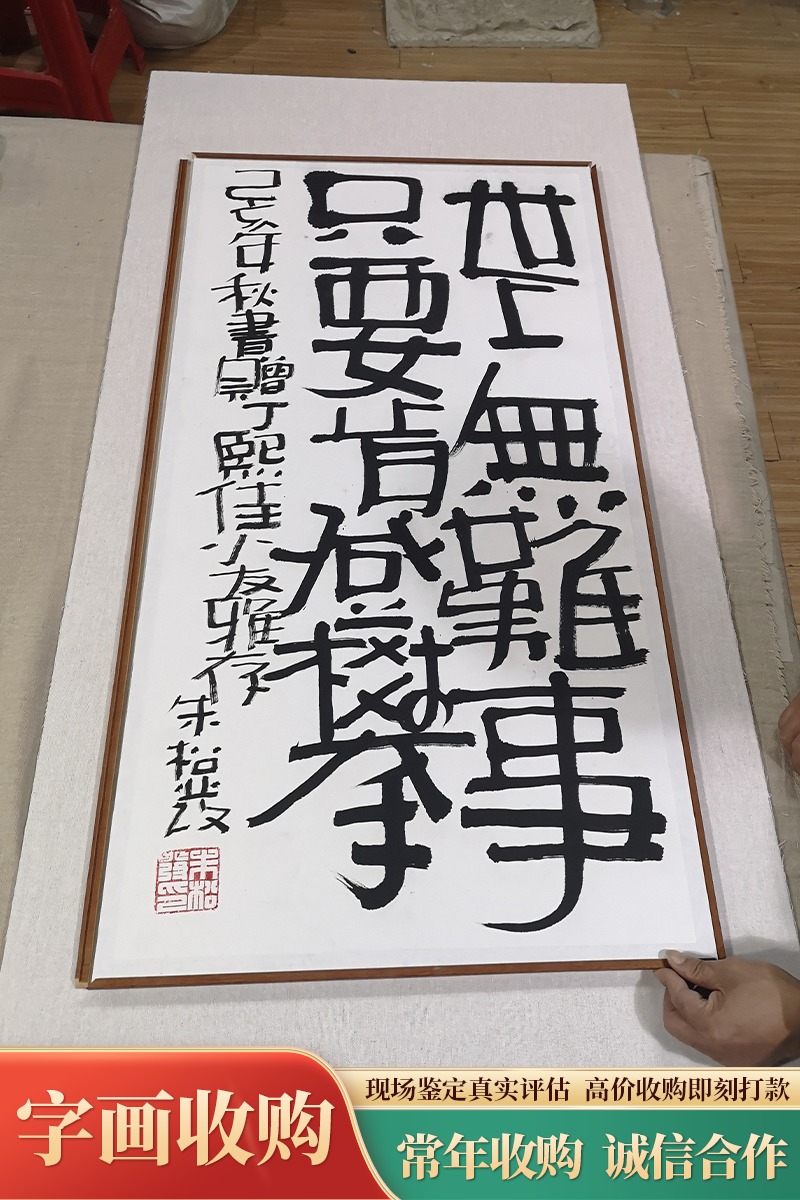 世上無難事
只要肯登攀
己亥年秋書贈丁熙佳小友雅存
朱松發
朱松發印
字画收购
现场鉴定真实评估 高价收购即刻打款
常年收购 诚信合作